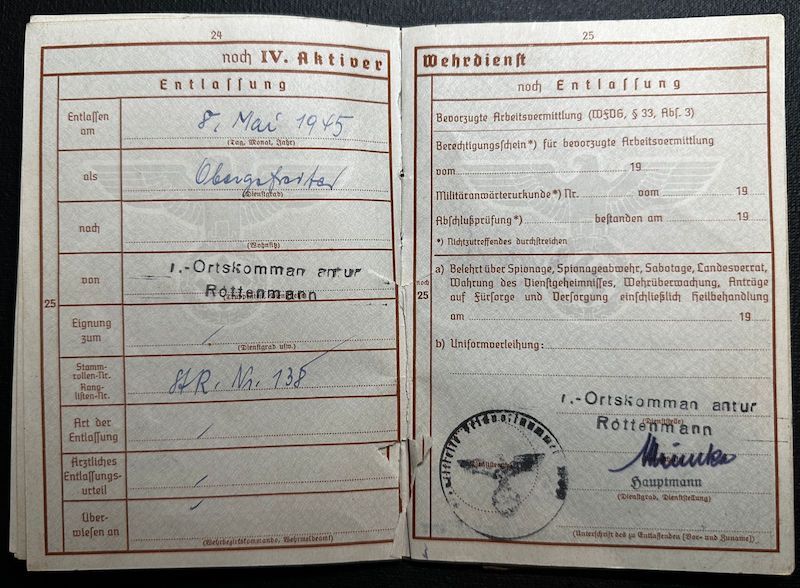 24
noch IV. Aktiver
Entlassung
Entlassen am
8. Mai 1945
(Tag, Monat, Jahr)
als
Obergefreiter
(Dienstgrad)
nach
(Wohnsitz)
von
r.-Ortskomman antur
Rottenmann
25
Eignung zum
(Dienstgrad usw.)
Stamm-
rollen-Nr.
Rang-
listen-Nr.
StR. Nr. 138
Art der
Entlassung
Ärztliches
Entlassungs-
urteil
Über-
wiesen an
(Wehrbezirkskommando, Wehrmeldeamt)
25
Wehrdienst
noch Entlassung
Bevorzugte Arbeitsvermittlung (WFVG, § 33, Abs. 3)
Berechtigungsschein*) für bevorzugte Arbeitsvermittlung
vom 19
Militäranwärterurkunde*) Nr. vom 19
Abschlußprüfung*) bestanden am 19
*) Nichtzutreffendes durchstreichen
noch
25
a) Belehrt über Spionage, Spionageabwehr, Sabotage, Landesverrat,
Wahrung des Dienstgeheimnisses, Wehrüberwachung, Anträge
auf Fürsorge und Versorgung einschließlich Heilbehandlung
am 19
b) Uniformverleihung:
r.-Ortskomman antur
(Dienststelle)
Rottenmann
Hauptmann
(Dienstgrad, Dienststellung)
(Unterschrift des zu Entlassenden [Vor- und Zuname])